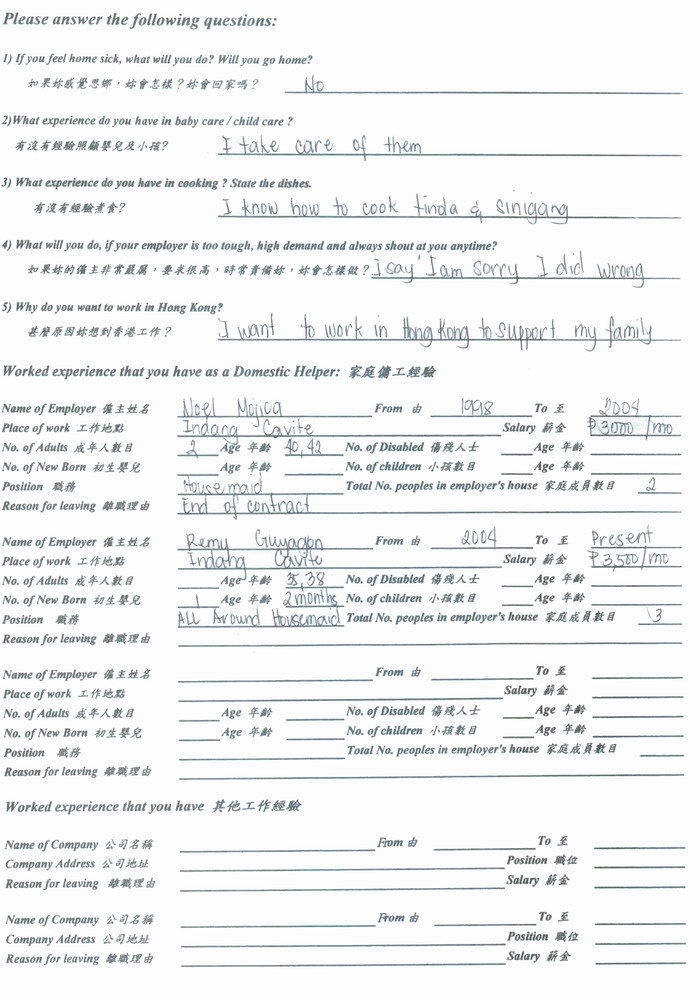 Please answer the following questions:
1) If you feel home sick, what will you do? Will you go home?
如果妳感覺思鄉，妳會怎樣？妳會回家嗎？ No
2)What experience do you have in baby care / child care ?
有沒有經驗照顧嬰兒及小孩? I take care of them
3) What experience do you have in cooking ? State the dishes.
有沒有經驗煮食? I know how to cook tinola & sinigang
4) What will you do, if your employer is too tough, high demand and always shout at you anytime?
如果妳的僱主非常嚴厲，要求很高，時常責備妳，妳會怎樣做？I say I am sorry I did wrong
5) Why do you want to work in Hong Kong?
甚麼原因妳想到香港工作？ I want to work in Hong Kong to support my family
Worked experience that you have as a Domestic Helper: 家庭傭工經驗
Name of Employer 僱主姓名 Noel Mojica From 由 1998 To 至 2004
Place of work 工作地點 Indang Cavite Salary 薪金 ₱3000 /mo
No. of Adults 成年人數目 2 Age 年齡 40,42 No. of Disabled 傷殘人士 Age 年齡
No. of New Born 初生嬰兒 Age 年齡 No. of children 小孩數目 Age 年齡
Position 職務 Housemaid Total No. peoples in employer's house 家庭成員數目 2
Reason for leaving 離職理由 End of contract
Name of Employer 僱主姓名 Remy From 由 2004 To 至 Present
Place of work 工作地點 Indang Cavite Salary 薪金 ₱3,500/mo
No. of Adults 成年人數目 Age 年齡 35,38 No. of Disabled 傷殘人士 Age 年齡
No. of New Born 初生嬰兒 1 Age 年齡 2months No. of children 小孩數目 Age 年齡
Position 職務 ALL Around Housemaid Total No. peoples in employer's house 家庭成員數目 3
Reason for leaving 離職理由
Name of Employer 僱主姓名 From 由 To 至
Place of work 工作地點 Salary 薪金
No. of Adults 成年人數目 Age 年齡 No. of Disabled 傷殘人士 Age 年齡
No. of New Born 初生嬰兒 Age 年齡 No. of children 小孩數目 Age 年齡
Position 職務 Total No. peoples in employer's house 家庭成員數目
Reason for leaving 離職理由
Worked experience that you have 其他工作經驗
Name of Company 公司名稱 From 由 To 至
Company Address 公司地址 Position 職位
Reason for leaving 離職理由 Salary 薪金
Name of Company 公司名稱 From 由 To 至
Company Address 公司地址 Position 職位
Reason for leaving 離職理由 Salary 薪金